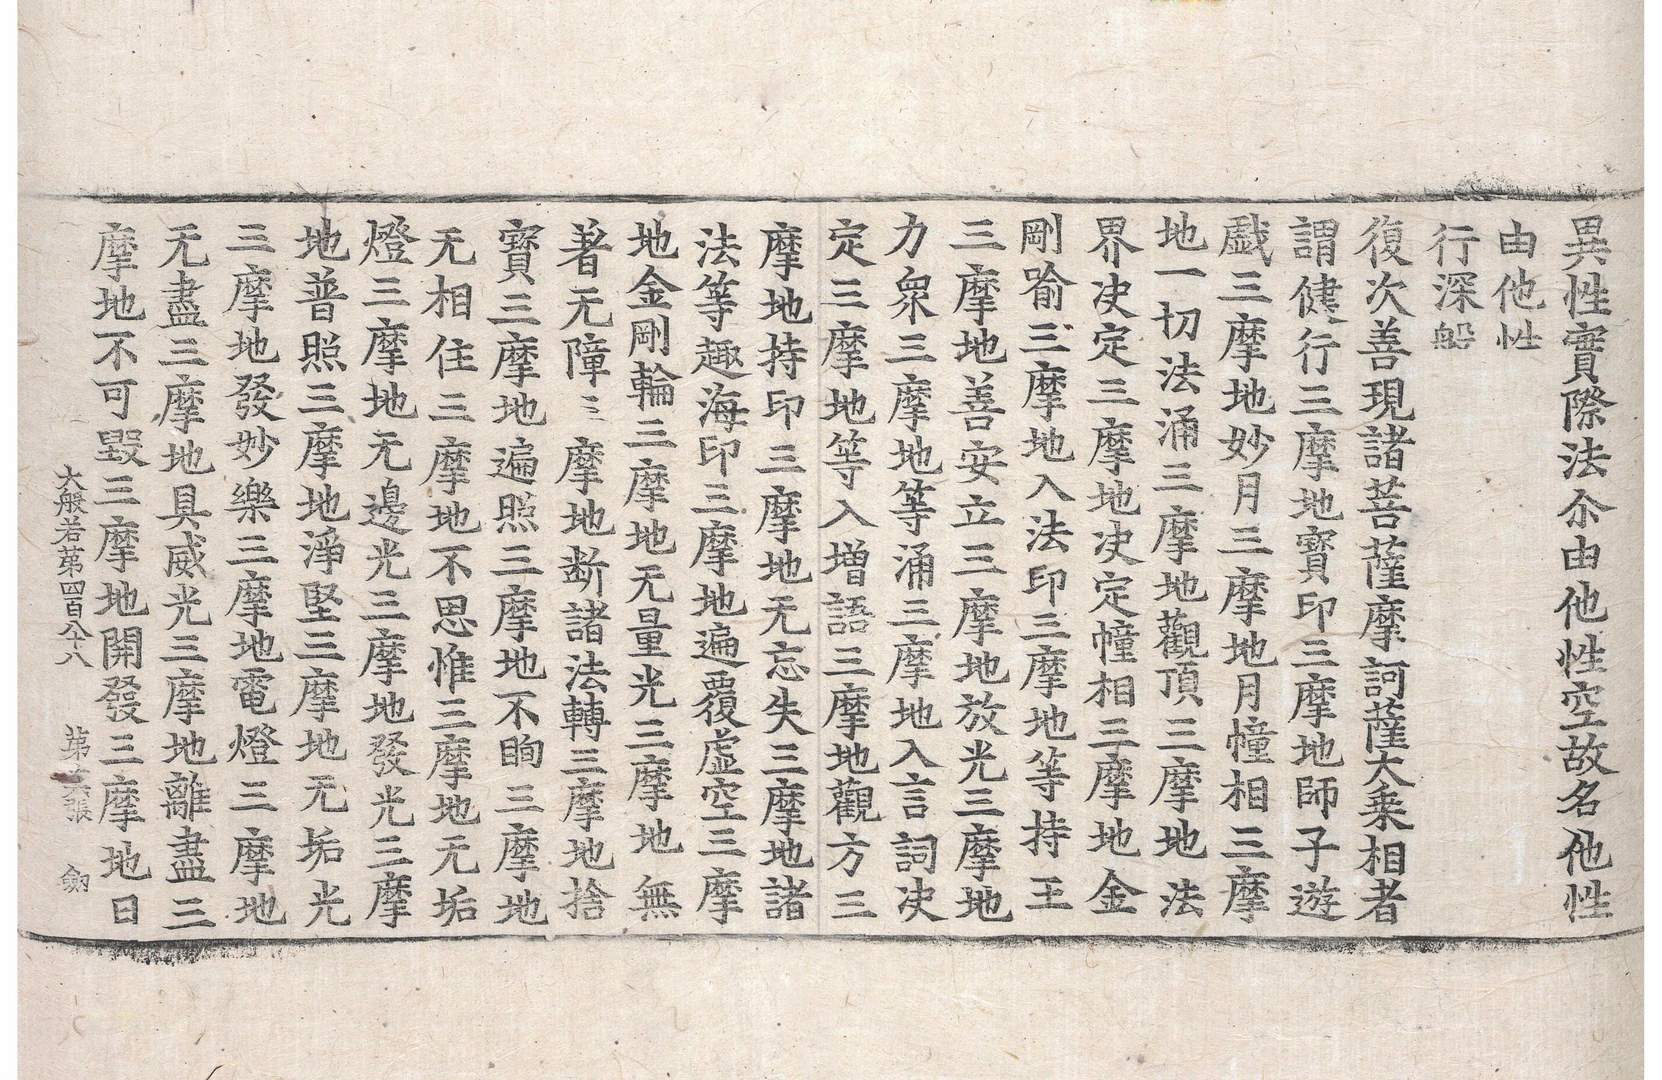 異性實際法尒由他性空故名他性
由他性
行深般
復次善現諸菩薩摩訶薩大乘相者
謂健行三摩地寶印三摩地師子遊
戲三摩地妙月三摩地月幢相三摩
地一切法涌三摩地觀頂三摩地法
界决定三摩地决定幢相三摩地金
剛喻三摩地入法印三摩地等持王
三摩地善安立三摩地放光三摩地
力衆三摩地等涌三摩地入言詞决
定三摩地等入增語三摩地觀方三
摩地持印三摩地无忘失三摩地諸
法等趣海印三摩地遍覆虛空三摩
地金剛輪三摩地无量光三摩地無
著无障三摩地断諸法轉三摩地捨
寶三摩地遍照三摩地不眴三摩地
无相住三摩地不思惟三摩地无垢
燈三摩地无邊光三摩地發光三摩
地普照三摩地淨堅三摩地无垢光
三摩地發妙樂三摩地電燈三摩地
无盡三摩地具威光三摩地離盡三
摩地不可毀三摩地開發三摩地日
大般若第四百八十八 第 張 劒